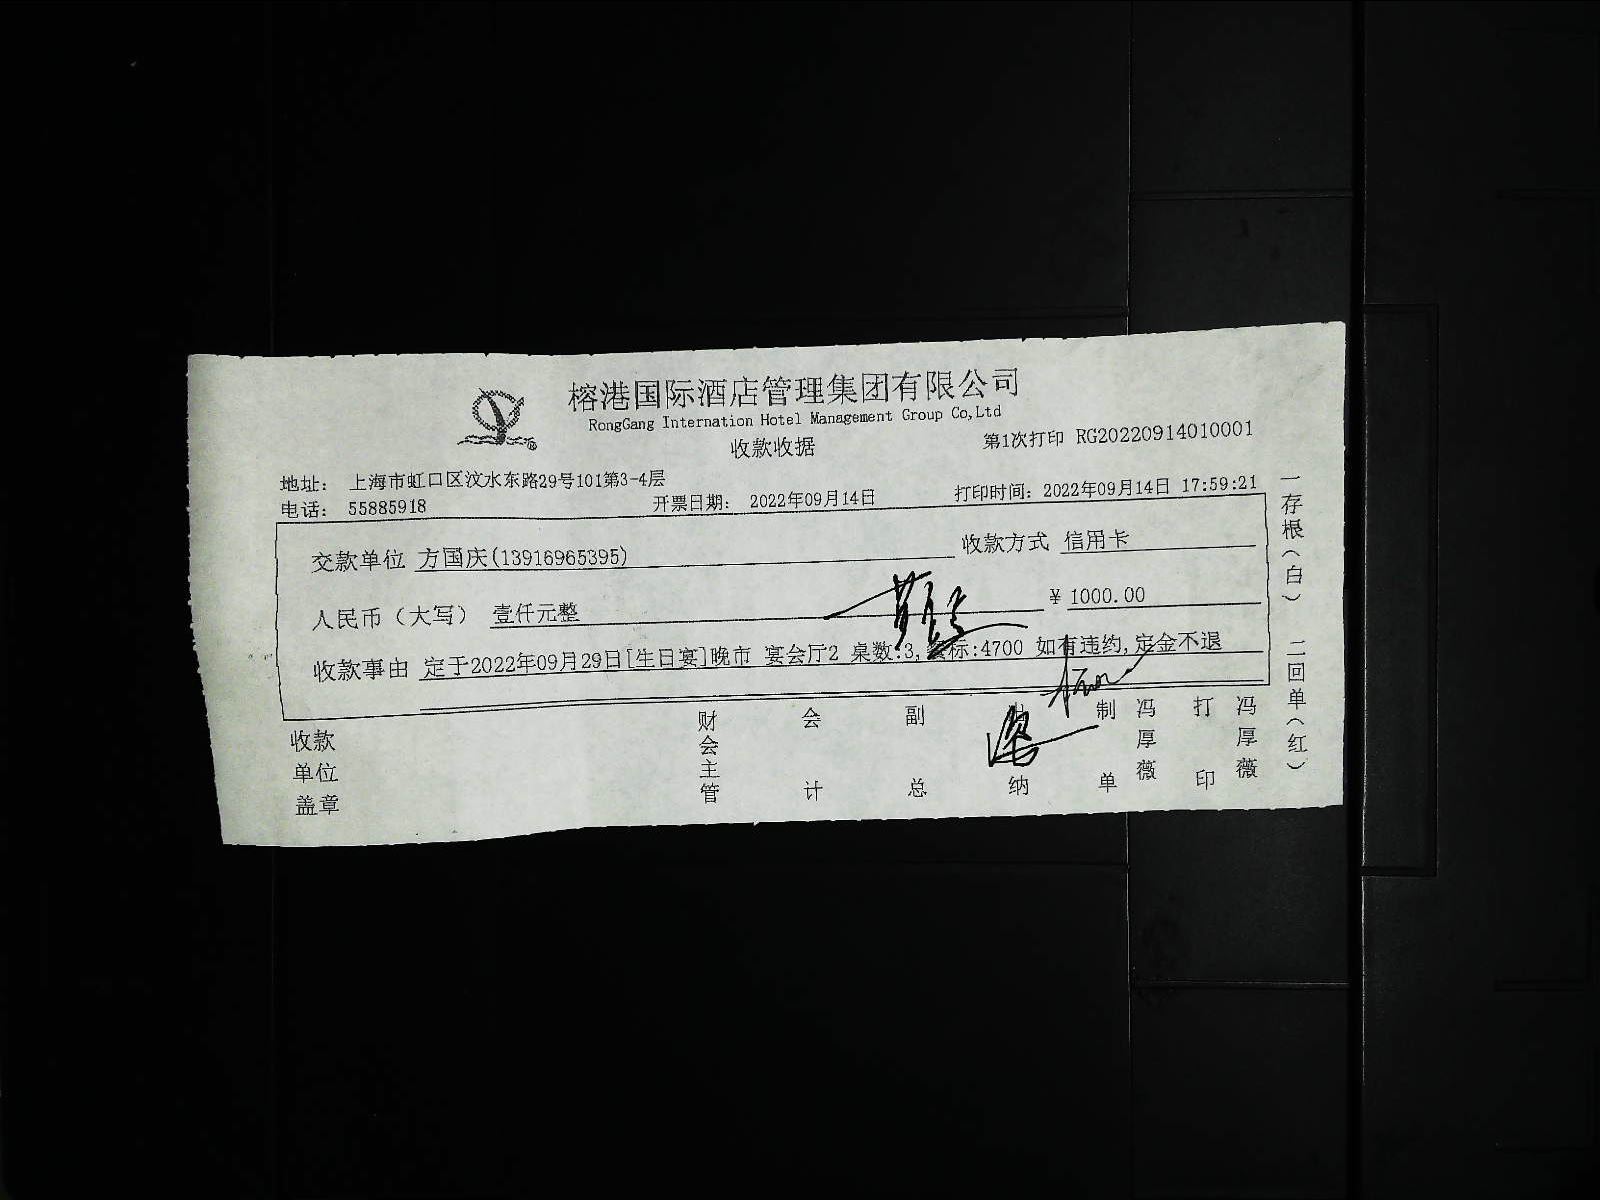 榕港国际酒店管理集团有限公司
RongGang Internation Hotel Management Group Co,Ltd
收款收据
第1次打印 RG20220914010001
地址： 上海市虹口区汶水东路29号101第3-4层
电话： 55885918 开票日期： 2022年09月14日 打印时间：2022年09月14日 17:59:21
交款单位 方国庆(13916965395) 收款方式 信用卡
人民币（大写） 壹仟元整 ¥ 1000.00
收款事由 定于2022年09月29日[生日宴]晚市 宴会厅2 桌数:3, 标:4700 如有违约,定金不退
收款单位盖章
财会主管
会计
副总
纳
制单
冯厚薇
打印
冯厚薇
一存根（白） 二回单（红）